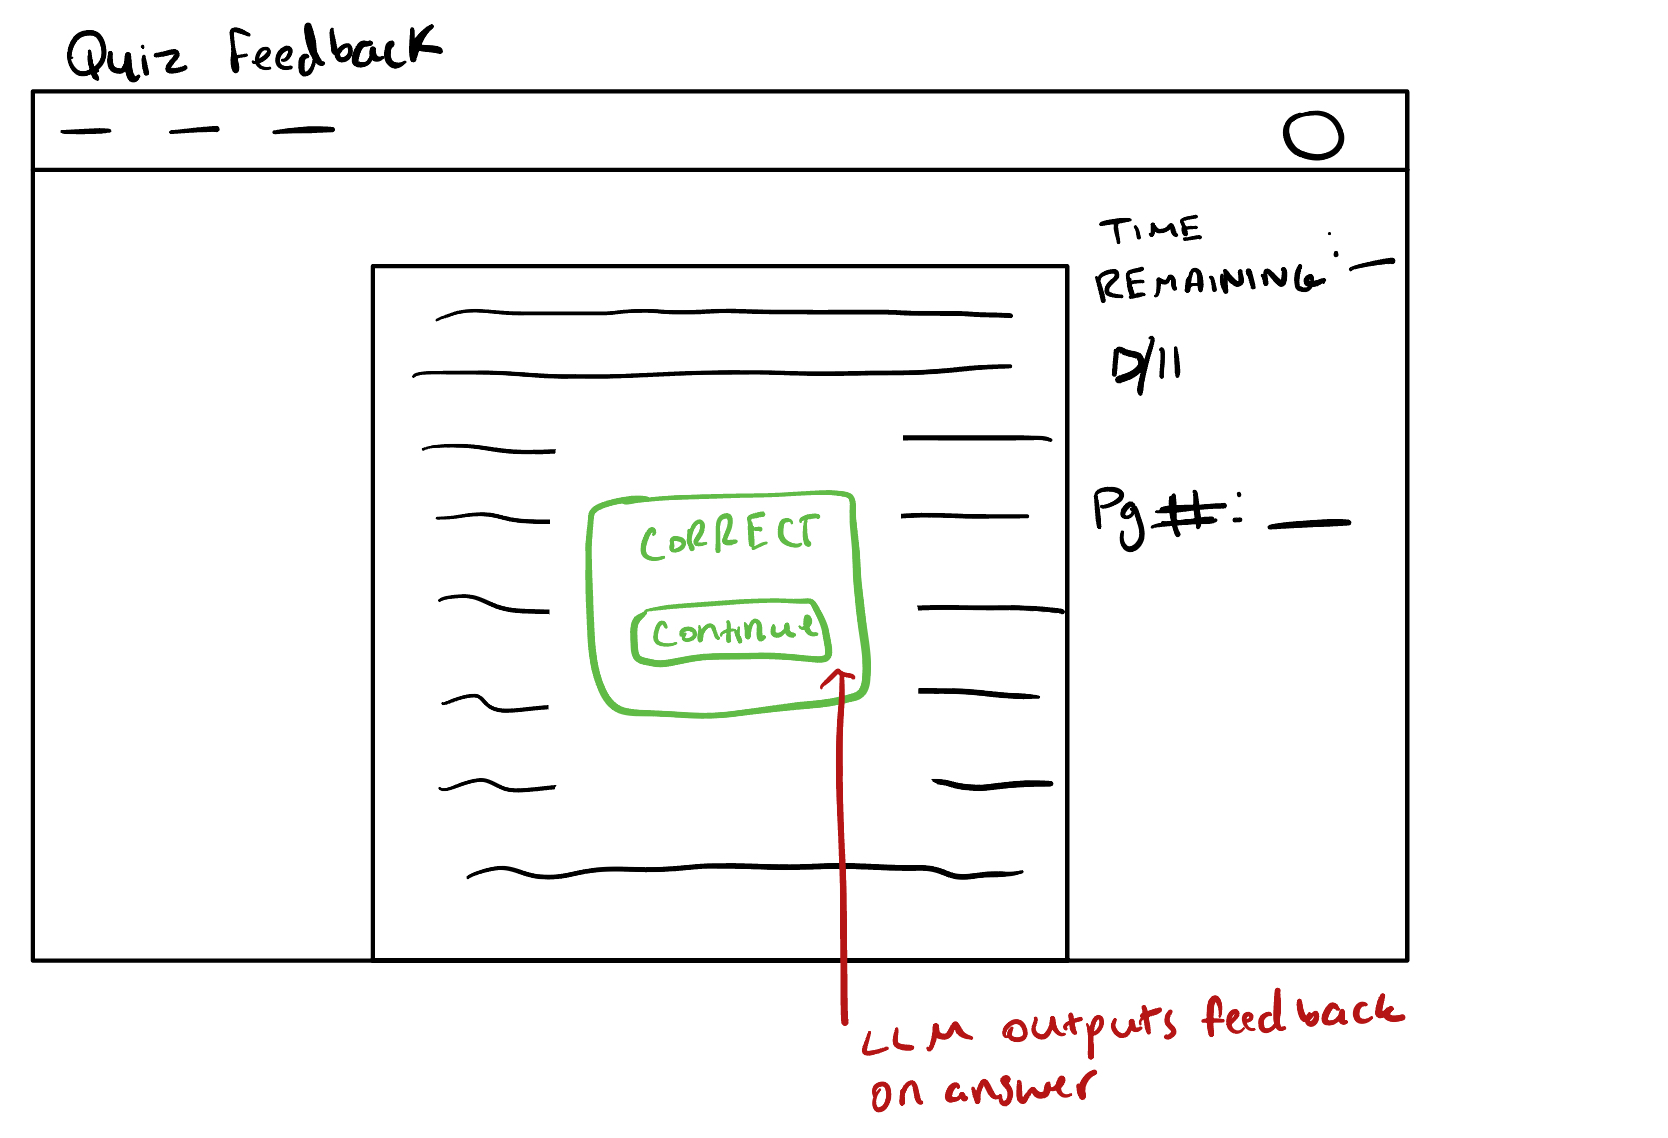 Quiz Feedback
TIME
REMAINING:
Pg #:
CORRECT
Continue
LLM outputs feedback
on answer